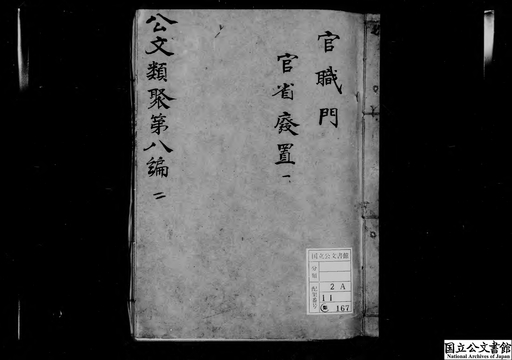 官職門
官省廢置一
公文類聚第八編 二
国立公文書館
分類
配架番号
2 A
11
167
国立公文書館
National Archives of Japan